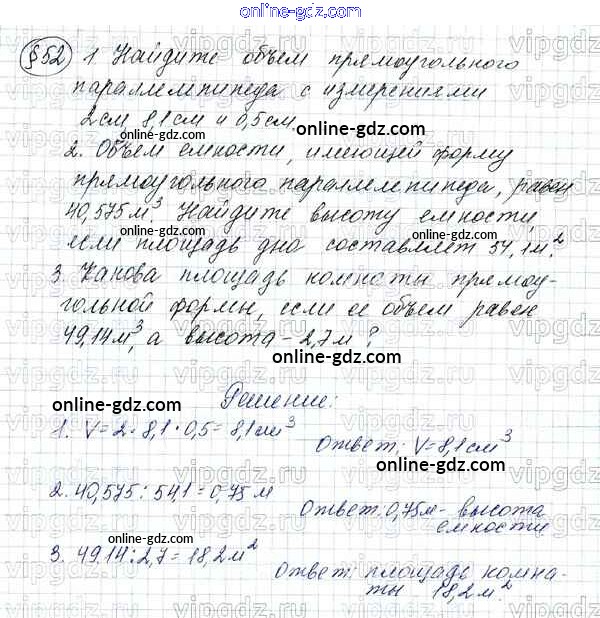 online-gdz.com
§52 1 Найдите объем прямоугольного
параллелепипеда с измерениями
2см 8,1см и 0,5см.
online-gdz.com
2. Объем емкости, имеющей форму
прямоугольного параллелепипеда, равен
40,575м³. Найдите высоту емкости,
online-gdz.com
если площадь дна составляет 54,1м².
3. Какова площадь комнаты прямоу-
гольной формы, если ее объем равен
49,14м³, а высота - 2,7м?
online-gdz.com
online-gdz.com
Решение:
1. V=2·8,1·0,5=8,1см³
Ответ: V=8,1см³
online-gdz.com
2. 40,575:54,1=0,75м
Ответ: 0,75м - высота
емкости
online-gdz.com
3. 49,14:2,7=18,2м²
Ответ: площадь комна-
ты 18,2м².
online-gdz.com